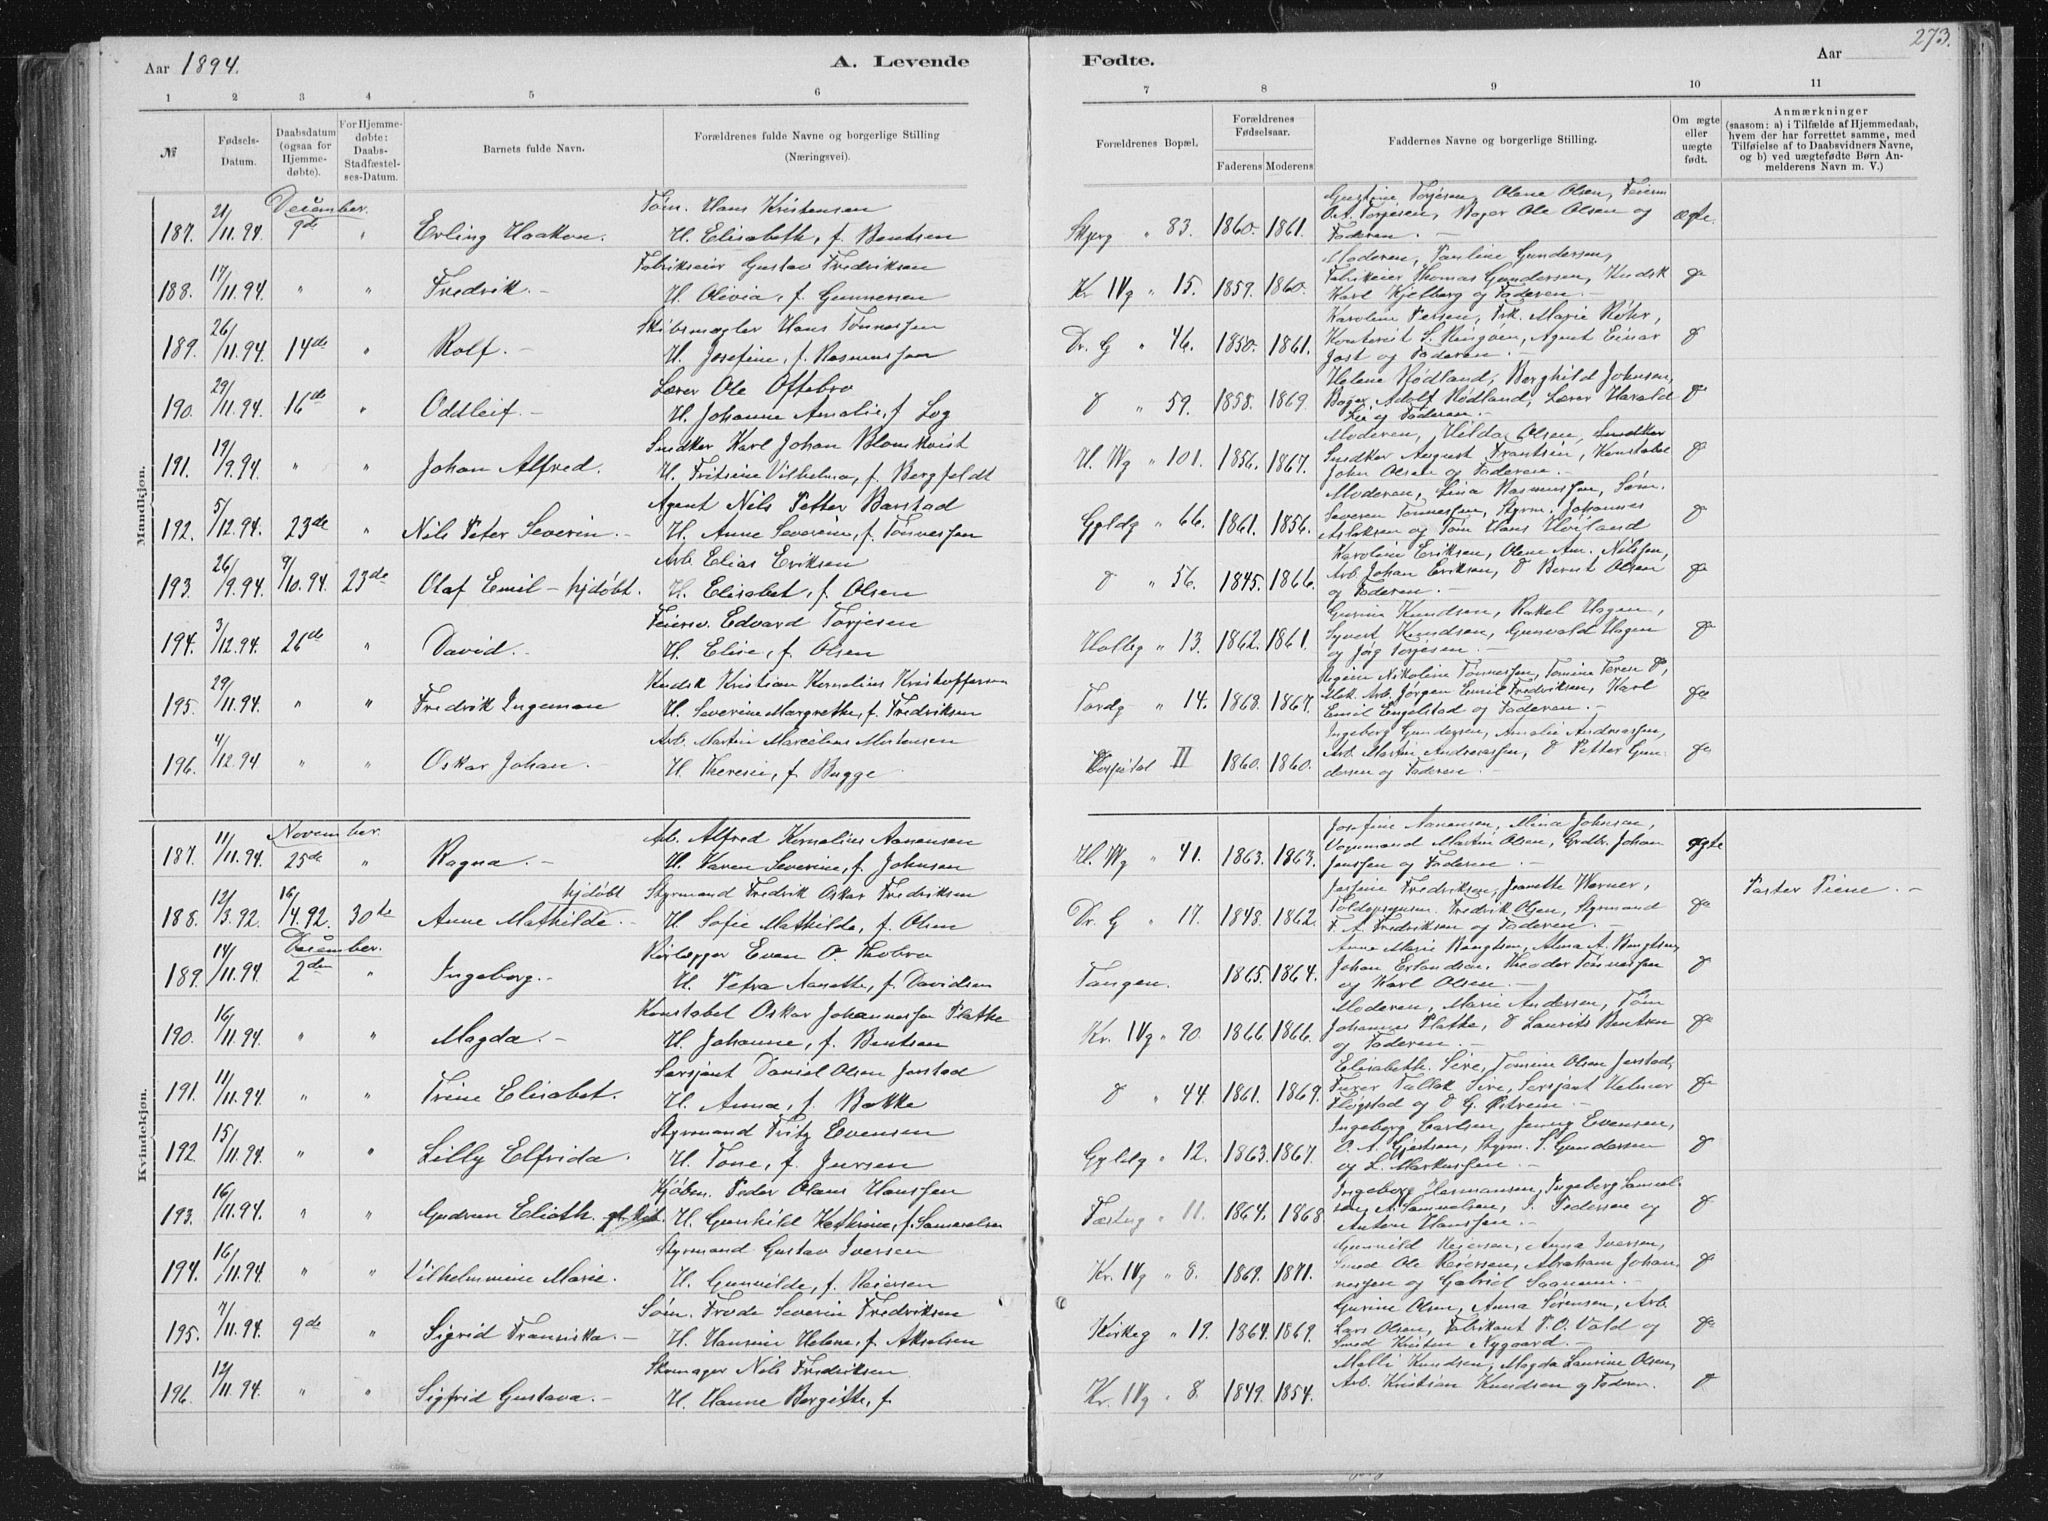 Aar 1894.
A. Levende
Fødte.
Aar
273.
1 2 3 4 5 6 7 8 9 10 11
№
Fødsels-Datum.
Daabsdatum (ogsaa for Hjemmedøbte).
For Hjemmedøbte: Daabs-Stadfæstelses-Datum.
Barnets fulde Navn.
Forældrenes fulde Navne og borgerlige Stilling (Næringsvei).
Forældrenes Bopæl.
Forældrenes Fødselsaar.
Faderens Moderens
Faddernes Navne og borgerlige Stilling.
Om ægte eller uægte født.
Anmærkninger (saasom: a) i Tilfælde af Hjemmedaab, hvem der har forrettet samme, med Tilføielse af to Daabsvidners Navne, og b) ved uægtefødte Børn Anmelderens Navn m. V.)
Mandkjøn.
December.
187. 21/11.94. 9de " Erling Haakon. Tøm. Hans Kristensen
H. Elisabeth, f. Bentsen
Skjerg " 83. 1860. 1861. Gustine Torjesen, Olene Olsen, Feierm
O. A. Torjesen, Bager Ole Olsen og
Faderen. - ægte.
188. 17/11.94. " " Fredrik. - Fabrikseier Gustav Fredriksen
H. Olivia, f. Gunnersen
Kr IVg " 15. 1859. 1860. Moderen, Pauline Gundersen,
Fabrikeier Thomas Gundersen, Kudsk
Karl Kjelberg og Faderen. - do
189. 26/11.94. 14de " Rolf. - Skibsmægler Hans Tønnessen
H. Josefine, f. Rasmussen
Dr. G " 46. 1850. 1861. Karoline Persen, Frk. Marie Røhr,
Kontorist S. Ringøen, Agent Einar
Jost og Faderen. - do
190. 29/11.94. 16de " Oddleif. - Lærer Ole Oftebro
H. Johanne Amalie, f. Log
do " 59. 1858. 1869. Helene Rødland, Borghild Johnsen,
Bager Adolf Rødland, Lærer Harald
Lie og Faderen. - do
191. 19/9.94. " " Johan Alfred. Snedker Karl Johan Blomkvist
H. Fritsine Vilhelmine, f. Bergfeldt
H. Wg " 101. 1856. 1867. Moderen, Hilda Olsen, Snedker
Snedker August Frantsen, Konstabel
John Olsen og Faderen. - do
192. 5/12.94. 23de " Nils Peter Severin. - Agent Nils Petter Barstad
H. Anne Severine, f. Tønnessen
Gyldg " 66. 1861. 1856. Moderen, Lina Rasmussen, Søm.
Severin Tønnessen, Styrm. Johannes
Aslaksen og Tøm Hans Hviland do
193. 26/9.94. 7/10.94. 23de Olaf Emil - hjdøbt. Arb. Elias Eriksen
H. Elisabet, f. Olsen
do " 56. 1845. 1866. Karoline Eriksen, Olene Am. Nilssen,
Arb. Johan Eriksen, do Bernt Olsen
og Faderen. - do
194. 3/12.94. 26de " David. - Feiersv. Edvard Torjesen
H. Elise, f. Olsen
Holbg " 13. 1862. 1861. Gurine Knudsen, Rakel Hagen,
Syvert Knudsen, Gunvald Hagen
og Jørg Torjesen. - do
195. 29/11.94. " " Fredrik Ingeman Kudsk Kristian Kornelius Kristoffersen
H. Severine Margrethe, f. Fredriksen
Tordg " 14. 1868. 1867. Regine Nikoline Tønnessen, Tomine Terese do,
Mek. Arb. Jørgen Emil Fredriksen, Karl
Emil Engelstad og Faderen. - do
196. 4/12.94 " " Oskar Johan. - Arb. Martin Marcelius Mortensen
H. Theresie, f. Bugge
Hospital II 1860. 1860. Ingeborg Gundersen, Amalie Andreassen,
Arb. Martin Andreassen, do Petter Gundersen og Faderen. - do
Kvindekjøn.
November.
187. 11/11.94. 25de " Ragna. - Arb. Alfred Kornelius Aanensen
H. Karen Severine, f. Johnsen
H. Wg " 41. 1863. 1863. Josefine Aanensen, Mina Johnsen,
Vognmand Martin Olsen, Grdbr. Johan
Janssen og Faderen. - ægte
188. 12/3.92. 16/4.92. 30te Anne Mathilde. - hjdøbt Styrmand Fredrik Oskar Fredriksen
H. Sofie Mathilde, f. Olsen
Dr. G " 17. 1848. 1862. Josfine Fredriksen, Jeanette Werner,
Toldopsynsm. Fredrik Olsen, Styrmand
F. A. Fredriksen og Faderen. - do Pastor Piene. -
December.
189. 14/11.94 2den " Ingeborg. - Rørlægger Even O. Thobro
H. Petra Aanette, f. Davidsen
Tangen. 1865. 1864. Anne Marie Bengtsen, Alma A. Bengtsen,
Johan Erlandsen, Theodor Tønnessen
og Karl Olsen. - do
190. 16/11.94. " " Magda. - Konstabel Oskar Johannessen Platke
H. Johanne, f. Bentsen
Kr. IVg " 90. 1866. 1866. Moderen, Marie Andersen, Tøm
Johannes Platke, do Laurits Bentsen
og Faderen. - do
191. 11/11.94. " " Trine Elisabet. Sersjant Daniel Olsen Jerstad
H. Anna, f. Bakke
do " 44. 1861. 1869. Elisabeth Sire, Tomine Olsen Jerstad,
Furer Tallak Sire, Sersjant Helmer
Fløgstad og do G. Østrem. - do
192. 15/11.94. " " Lilly Elfrida. Styrmand Fritz Evensen
H. Tone, f. Jursen
Gyldg " 12. 1863. 1867. Ingeborg Carlsen, Jenny Evensen,
O. A. Gjertsen, Styrm. S. Gundersen
og L. Markussen. - do
193. 16/11.94. " " Gudrun Elioth. Kjøbm. Peder Olaus Hanssen
H. Gunhild Kathrine, f. Samuelsen
Fæstng " 11. 1864. 1868 Ingeborg Hermansen, Ingeborg Samuelsen, A. Samuelsen, S. Pedersen og
Anton Hanssen. - do
194. 16/11.94. " " Vilhelmine Marie. Styrmand Gustav Iversen
H. Gunvilde, f. Reiersen
Kr. IVg " 8. 1869. 1871. Gunvild Reiersen, Anna Iversen,
Smed Ole Reiersen, Abraham Johannessen og Gabriel Saanum. - do
195. 7/11.94. 9de " Sigrid Fransiska. - Søm. Frode Severin Fredriksen
H. Hansine Helene, f. Akselsen
Kirkeg " 19. 1864. 1869. Gurine Olsen, Anna Sørensen, Arb.
Lars Olsen, Fabrikant P. O. Vold og
Smed Kristen Nygaard. do
196. 12/11.94. " " Sigfrid Gustava. - Skomager Nils Fredriksen
H. Hanne Bergitte, f.
Kr. IVg " 8. 1849. 1854. Malli Knudsen, Magda Laurine Olsen,
Arb. Kristian Knudsen og Faderen. do